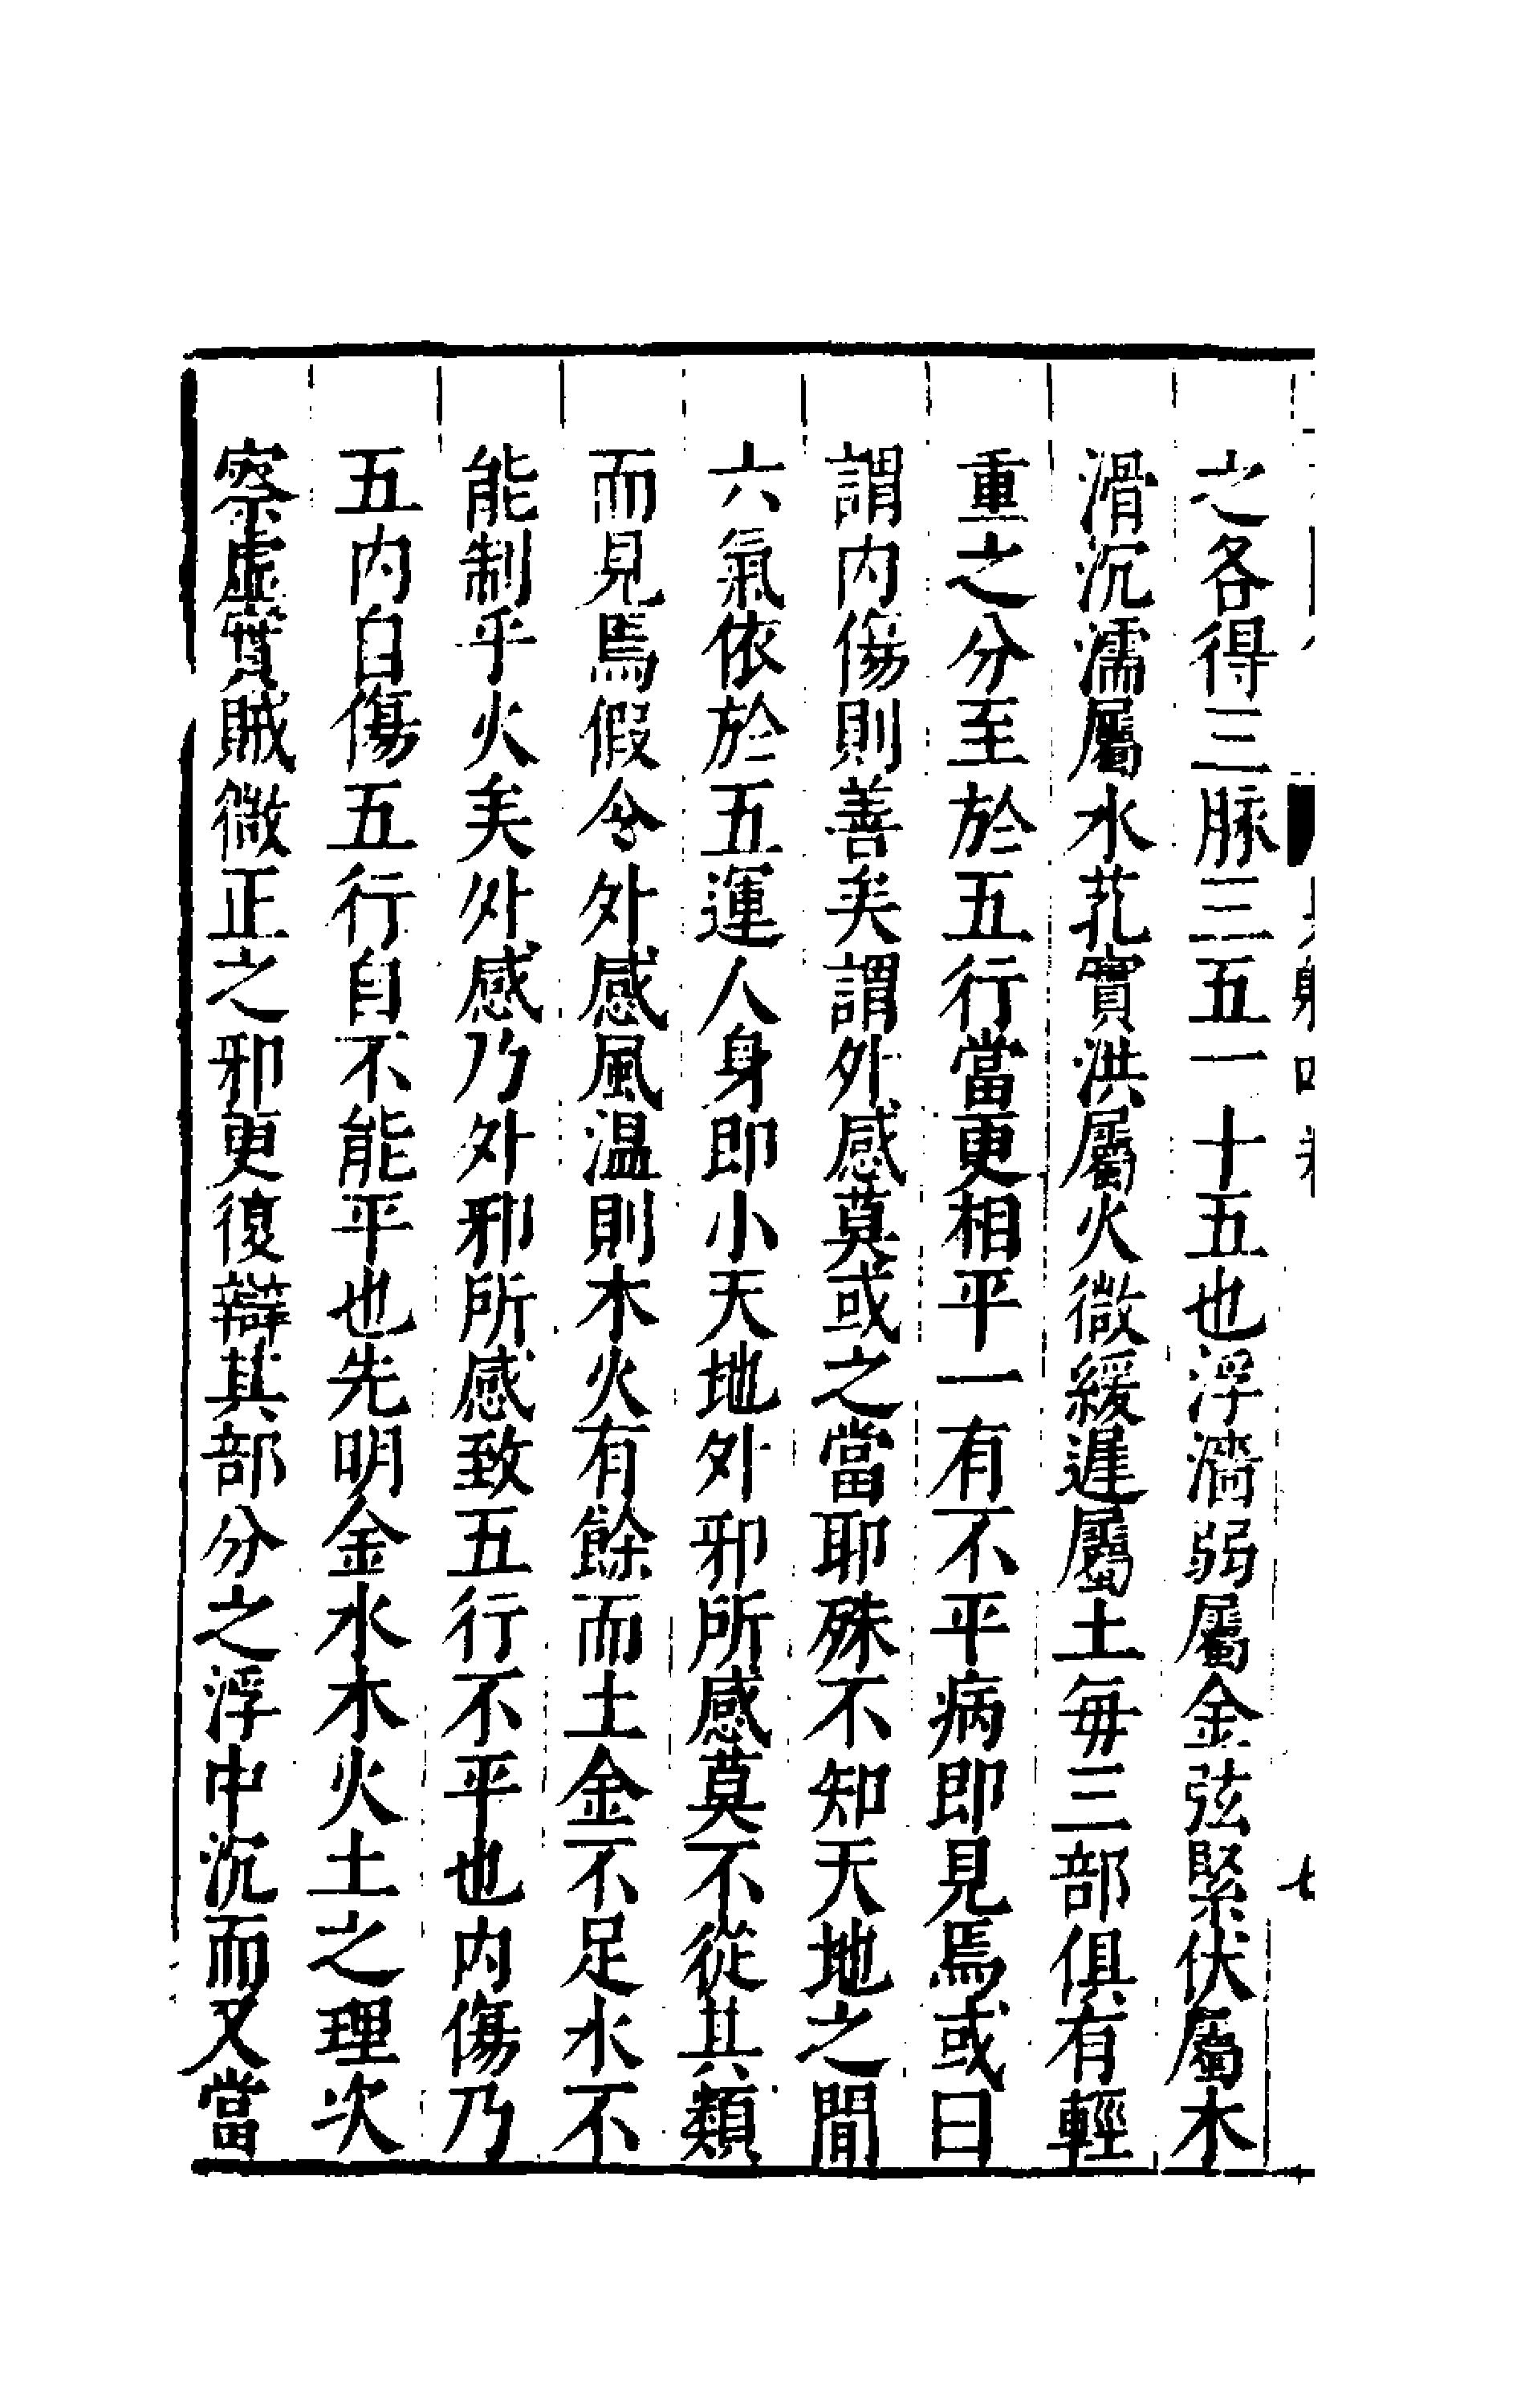 之各得三脉三五一十五也浮濇弱屬金弦緊伏屬木
滑沉濡屬水芤實洪屬火微緩遲屬土每三部俱有輕
重之分至於五行當更相平一有不平病即見焉或曰
謂内傷則善矣謂外感莫或之當耶殊不知天地之間
六氣依於五運人身即小天地外邪所感莫不從其類
而見焉假令外感風温則木火有餘而土金不足水不
能制乎火矣外感乃外邪所感致五行不平也内傷乃
五内自傷五行自不能平也先明金水木火土之理次
察虚實賊微正之邪更復辯其部分之浮中沉而又當